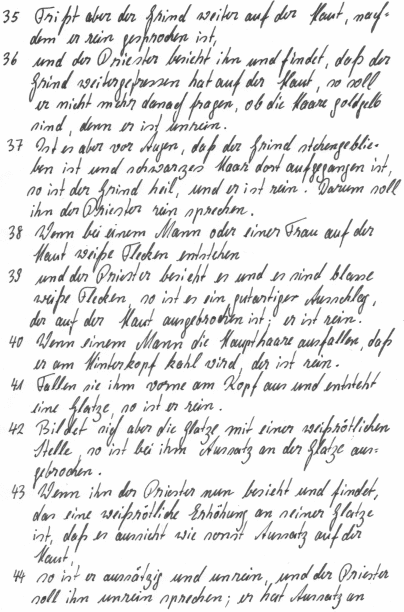 35 Frißt aber der Grind weiter auf der Haut, nach-
dem er rein gesprochen ist,
36 und der Priester besieht ihn und findet, daß der
Grind weitergefressen hat auf der Haut, so soll
er nicht mehr danach fragen, ob die Haare goldgelb
sind, denn er ist unrein.
37 Ist es aber vor Augen, daß der Grind stehengeblie-
ben ist und schwarzes Haar dort aufgegangen ist,
so ist der Grind heil, und er ist rein. Darum soll
ihn der Priester rein sprechen.
38 Wenn bei einem Mann oder einer Frau auf der
Haut weiße Flecken entstehen
39 und der Priester besieht es und es sind blasse
weiße Flecken, so ist es ein gutartiger Ausschlag,
der auf der Haut ausgebrochen ist; er ist rein.
40 Wenn einem Mann die Haupthaare ausfallen, daß
er am Hinterkopf kahl wird, der ist rein.
41 Fallen sie ihm vorne am Kopf aus und entsteht
eine Glatze, so ist er rein.
42 Bildet sich aber die Glatze mit einer weißrötlichen
Stelle, so ist bei ihm Aussatz an der Glatze aus-
gebrochen.
43 Wenn ihn der Priester nun besieht und findet,
das eine weißrötliche Erhöhung an seiner Glatze
ist, daß es aussieht wie sonst Aussatz auf der
Haut,
44 so ist er aussätzig und unrein, und der Priester
soll ihn unrein sprechen; er hat Aussatz an